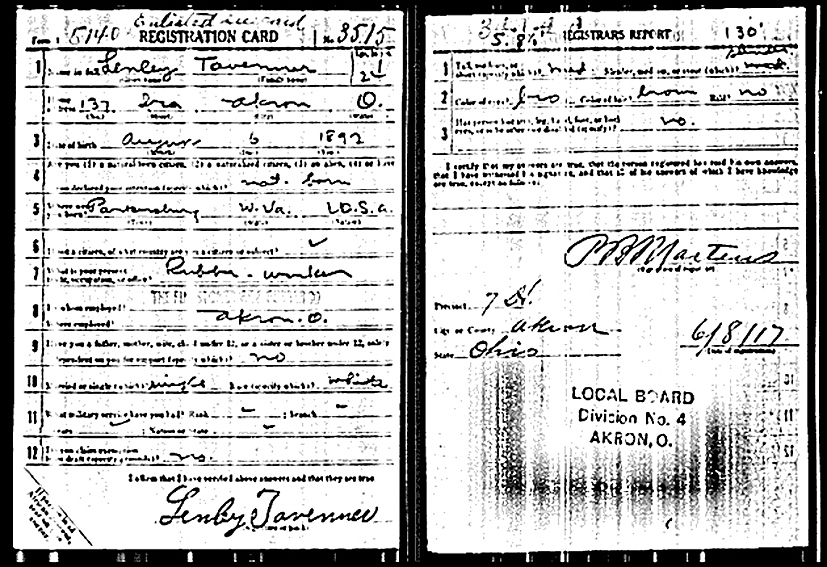 Enlisted
Form 1 5140 REGISTRATION CARD No. 3515
1 Name in full Lenley Tavenner Age, in yrs. 24
(Given name) (Family name)
2 Home address 137 Ira Akron O.
(No.) (Street) (City) (State)
3 Date of birth August 6 1892
(Month) (Day) (Year)
Are you (1) a natural-born citizen, (2) a naturalized citizen, (3) an alien, (4) or have
4 you declared your intention (specify which)? nat. born
5 Where were you born? Parkersburg W. Va. U.S.a.
(Town) (State) (Nation)
6 If not a citizen, of what country are you a citizen or subject? ✓
7 What is your present trade, occupation, or office? Rubber-worker
8 By whom employed?
Where employed? akron. O.
9 Have you a father, mother, wife, child under 12, or a sister or brother under 12, solely
dependent on you for support (specify which)? no
10 Married or single (which)? single Race (specify which)? white
11 What military service have you had? Rank – ; branch –
years ; Nation or State
12 Do you claim exemption
from draft (specify grounds)? no.
I affirm that I have verified above answers and that they are true
Lenley Tavenner
REGISTRARS REPORT 130
1 Tall, medium, or short (specify which)? med Slender, medium, or stout (which)? slender
2 Color of eyes? bro Color of hair? brown Bald? no
3 Has person lost arm, leg, hand, foot, or both
eyes, or is he otherwise disabled (specify)? no.
I certify that my answers are true, that the person registered has read his own answers,
that I have witnessed his signature, and that all of his answers of which I have knowledge
are true, except as follows:
P B Martens
(Signature of registrar)
Precinct 7 H.
City or County akron
State Ohio
6/8/17
(Date of registration)
LOCAL BOARD
Division No. 4
AKRON, O.